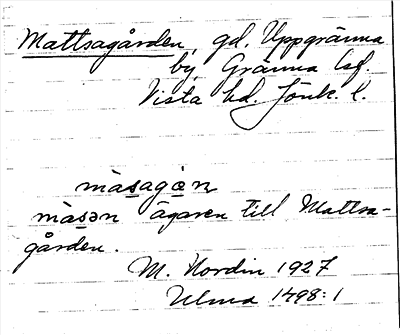 Mattsagården, gd. Uppgränna
by Gränna lsf.
Vista hd. Jönk. l.
màsagɷn
màsən ägaren till Mattsa-
gården.
M. Nordin 1927
Ulma 1498:1